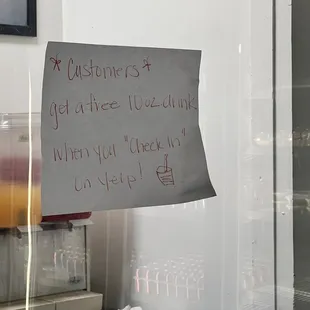 *Customers*
get a free 10oz drink
when you "Check in"
on Yelp!